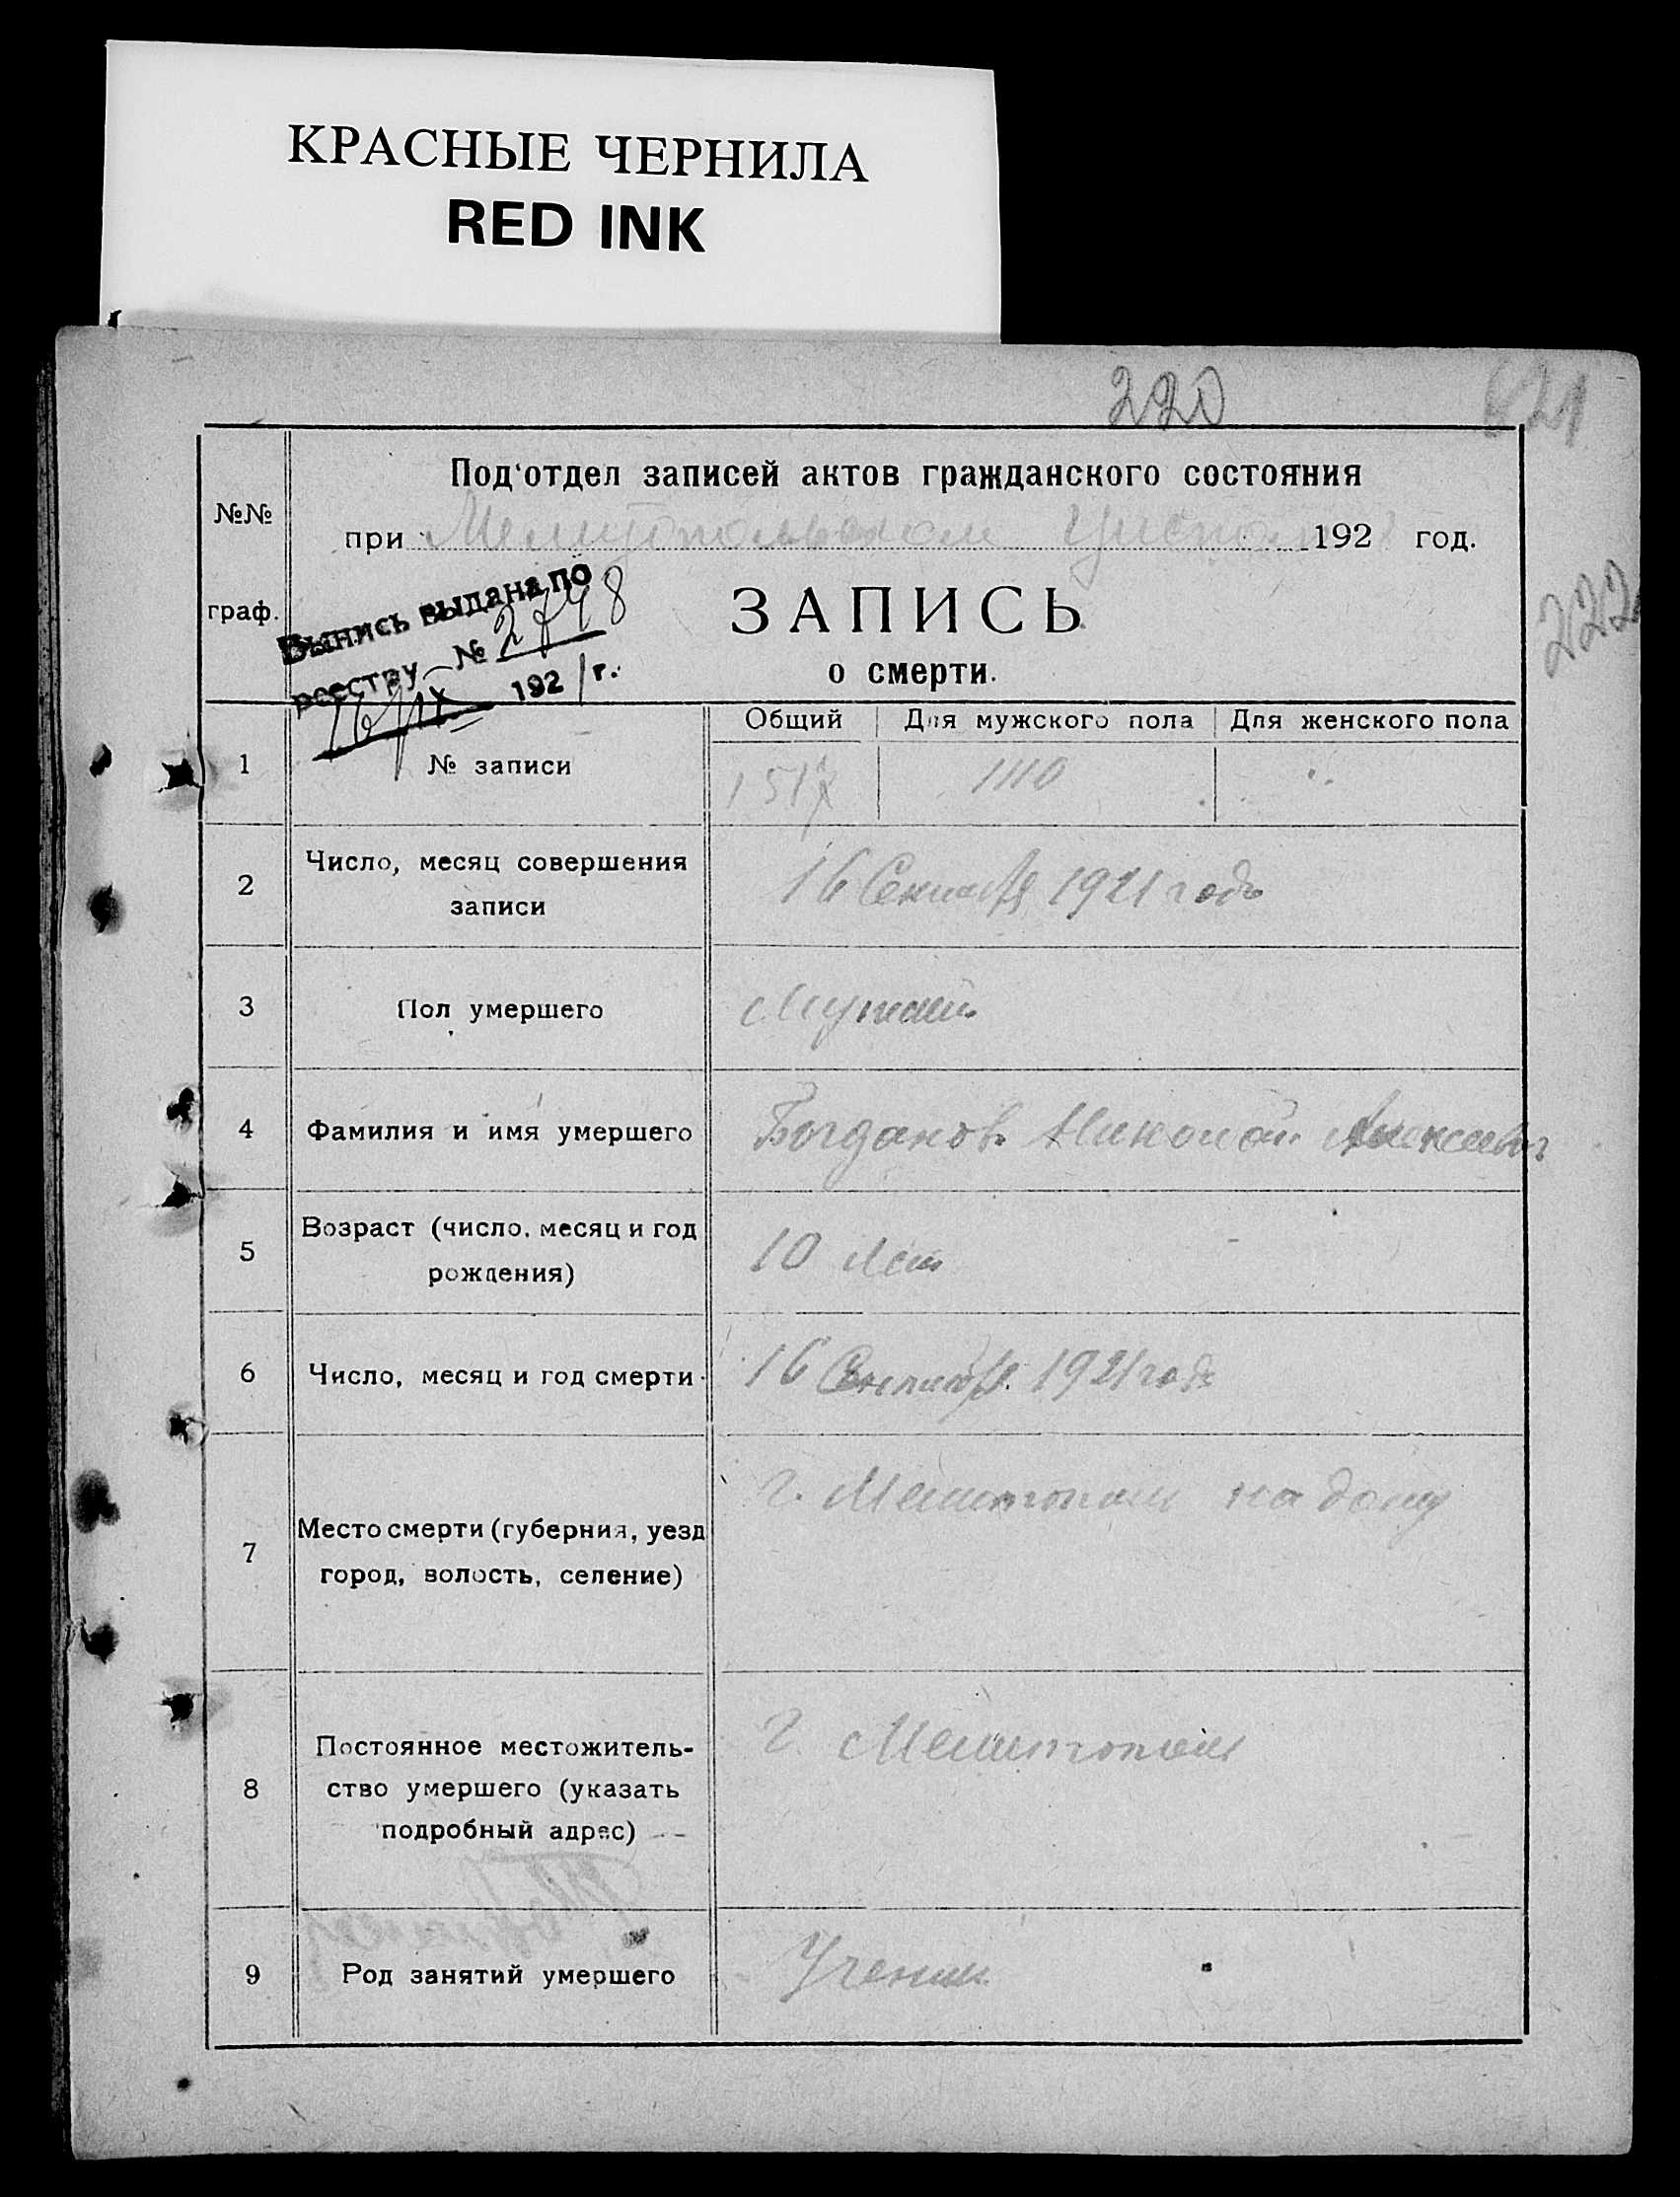 КРАСНЫЕ ЧЕРНИЛА
RED INK
220
621
222
Под'отдел записей актов гражданского состояния
№№
при Мелитопольском 192 год.
граф.
Выпись выдана по
реестру № 2748
16/IX 1921 г.
ЗАПИСЬ
о смерти.
Общий Для мужского пола Для женского пола
1 № записи 1517 1110
2 Число, месяц совершения
записи
16 Сентября 1921 года
3 Пол умершего Мужской
4 Фамилия и имя умершего Богданов Николай Алексеевич
5 Возраст (число, месяц и год
рождения)
10 лет
6 Число, месяц и год смерти 16 Сентября 1921 года
7 Место смерти (губерния, уезд
город, волость, селение)
г. Мелитополь на дому
8 Постоянное местожитель-
ство умершего (указать
подробный адрес)
г. Мелитополь
9 Род занятий умершего Ученик